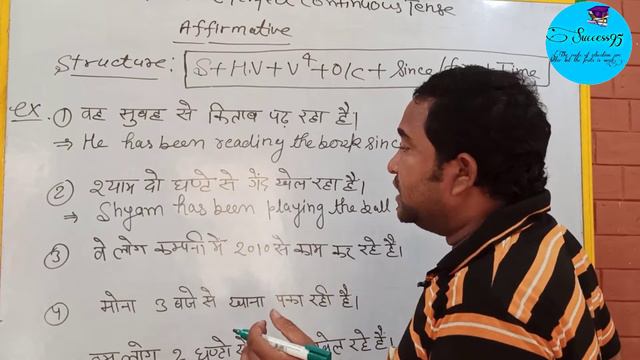 Continuous Tense
Affirmative
Structure: S + H.V + V⁴ + O/C + Since / for + Time
Success95
ex. ① वह सुबह से किताब पढ़ रहा है।
⇒ He has been reading the book sinc
② श्याम दो घण्टे से गेंद खेल रहा है।
⇒ Shyam has been playing the ball
③ वे लोग कम्पनी में 2010 से काम कर रहे है।
④ मोना 3 बजे से खाना पका रही है।
लोग 2 घण्टे खेल रहे है।